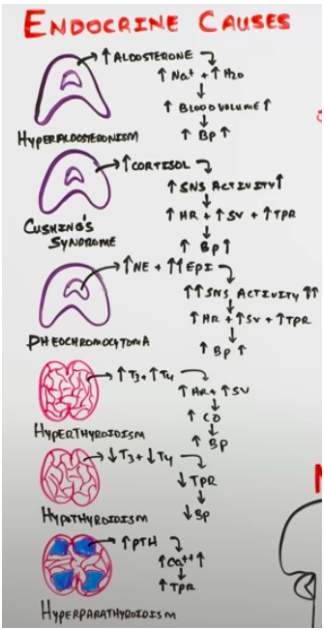 ENDOCRINE CAUSES
↑ ALDOSTERONE
↑ Na⁺ + ↑ H₂O
↓
↑ BLOOD VOLUME ↑
↓
↑ BP ↑
HYPERALDOSTERONISM
↑ CORTISOL
↑ SNS ACTIVITY ↑
↓
↑ HR + ↑ SV + ↑ TPR
↓
↑ BP ↑
CUSHING'S
SYNDROME
↑ NE + ↑↑ EPI
↑↑ SNS ACTIVITY ↑↑
↓
↑ HR + ↑ SV + ↑ TPR
↓
↑ BP ↑
PHEOCHROMOCYTOMA
↑ T₃ + ↑ T₄
↑ HR + ↑ SV
↓
↑ CO
↓
↑ BP
HYPERTHYROIDISM
↓ T₃ + ↓ T₄
↓ TPR
↓
↓ BP
HYPOTHYROIDISM
↑ PTH
↑ Ca⁺⁺ ↑
↓
↑ TPR
HYPERPARATHYROIDISM